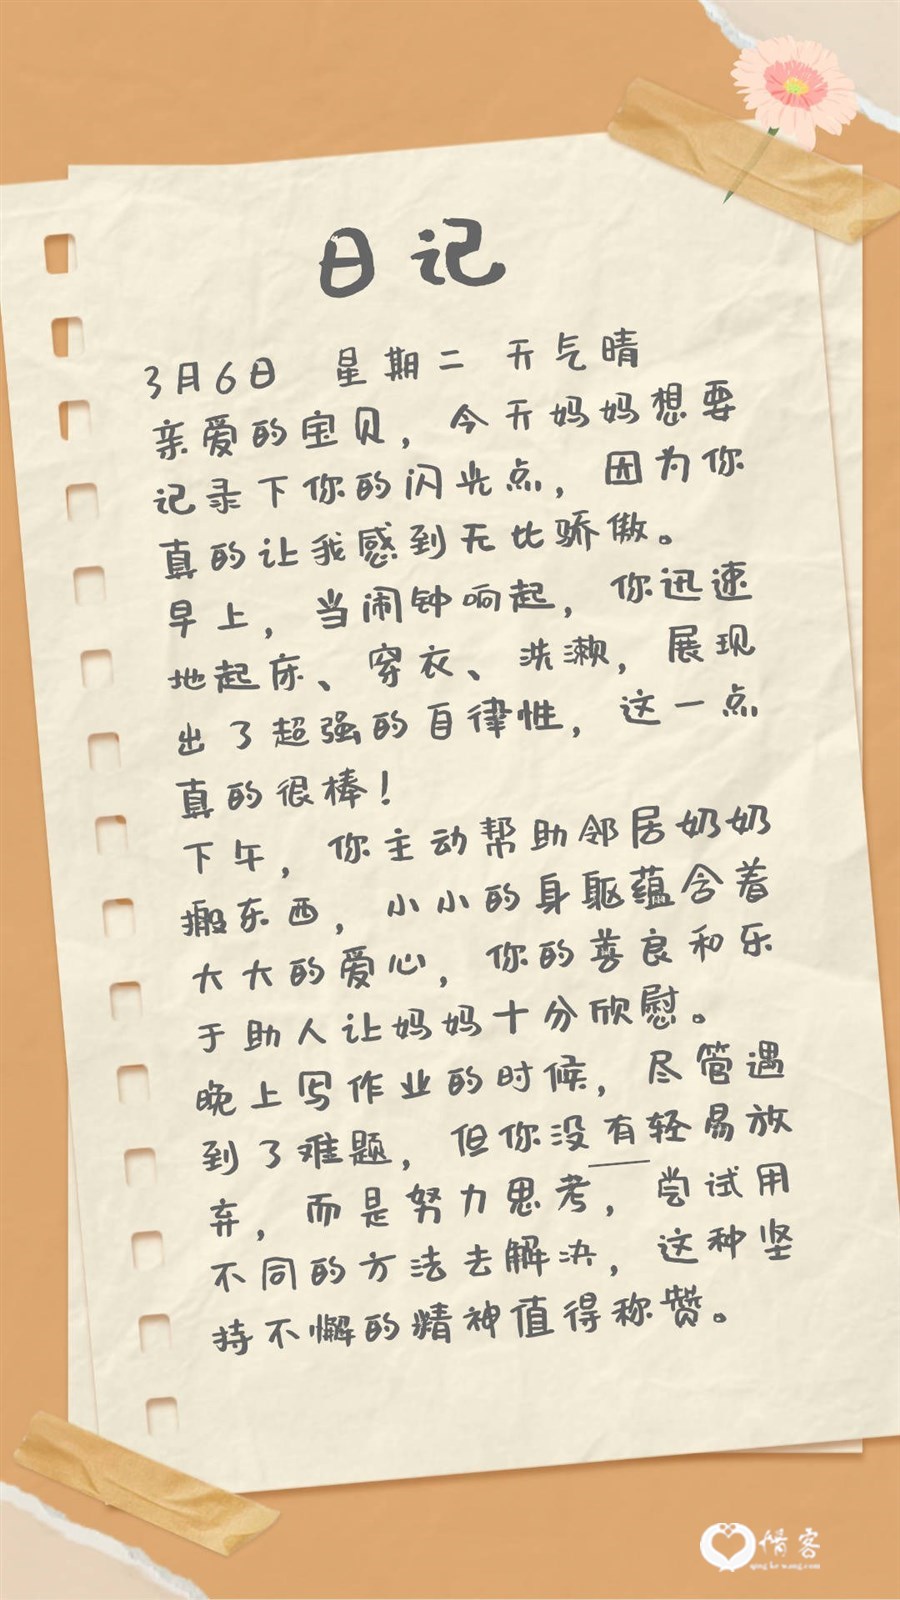 日记
3月6日 星期二 天气晴
亲爱的宝贝，今天妈妈想要
记录下你的闪光点，因为你
真的让我感到无比骄傲。
早上，当闹钟响起，你迅速
地起床、穿衣、洗漱，展现
出了超强的自律性，这一点
真的很棒！
下午，你主动帮助邻居奶奶
搬东西，小小的身躯蕴含着
大大的爱心，你的善良和乐
于助人让妈妈十分欣慰。
晚上写作业的时候，尽管遇
到了难题，但你没有轻易放
弃，而是努力思考，尝试用
不同的方法去解决，这种坚
持不懈的精神值得称赞。
情客
qingkewang.com